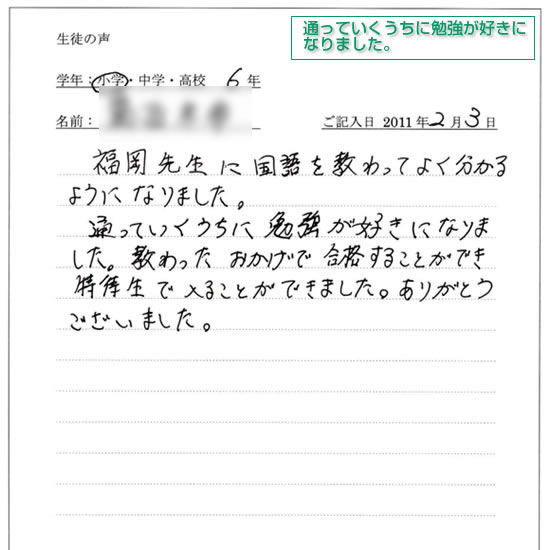 通っていくうちに勉強が好きに
なりました。
生徒の声
学年：小学・中学・高校 6年
名前： ご記入日 2011年2月3日
福岡先生に国語を教わってよく分かる
ようになりました。
通っていくうちに勉強が好きになりま
した。教わったおかげで合格することができ
特待生で入ることができました。ありがとう
ございました。